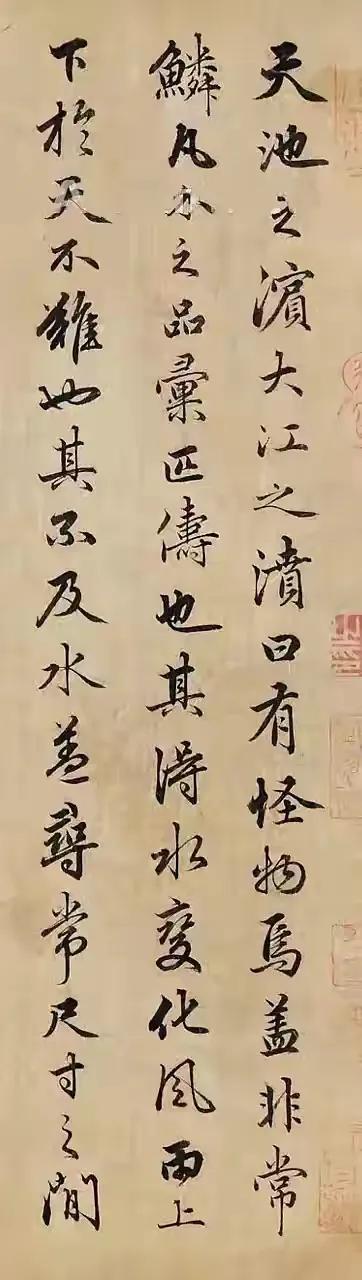 天池之濱大江之濆曰有怪物焉盖非常
鱗凡介之品彙匹儔也其得水變化風雨上
下於天不難也其不及水盖尋常尺寸之間